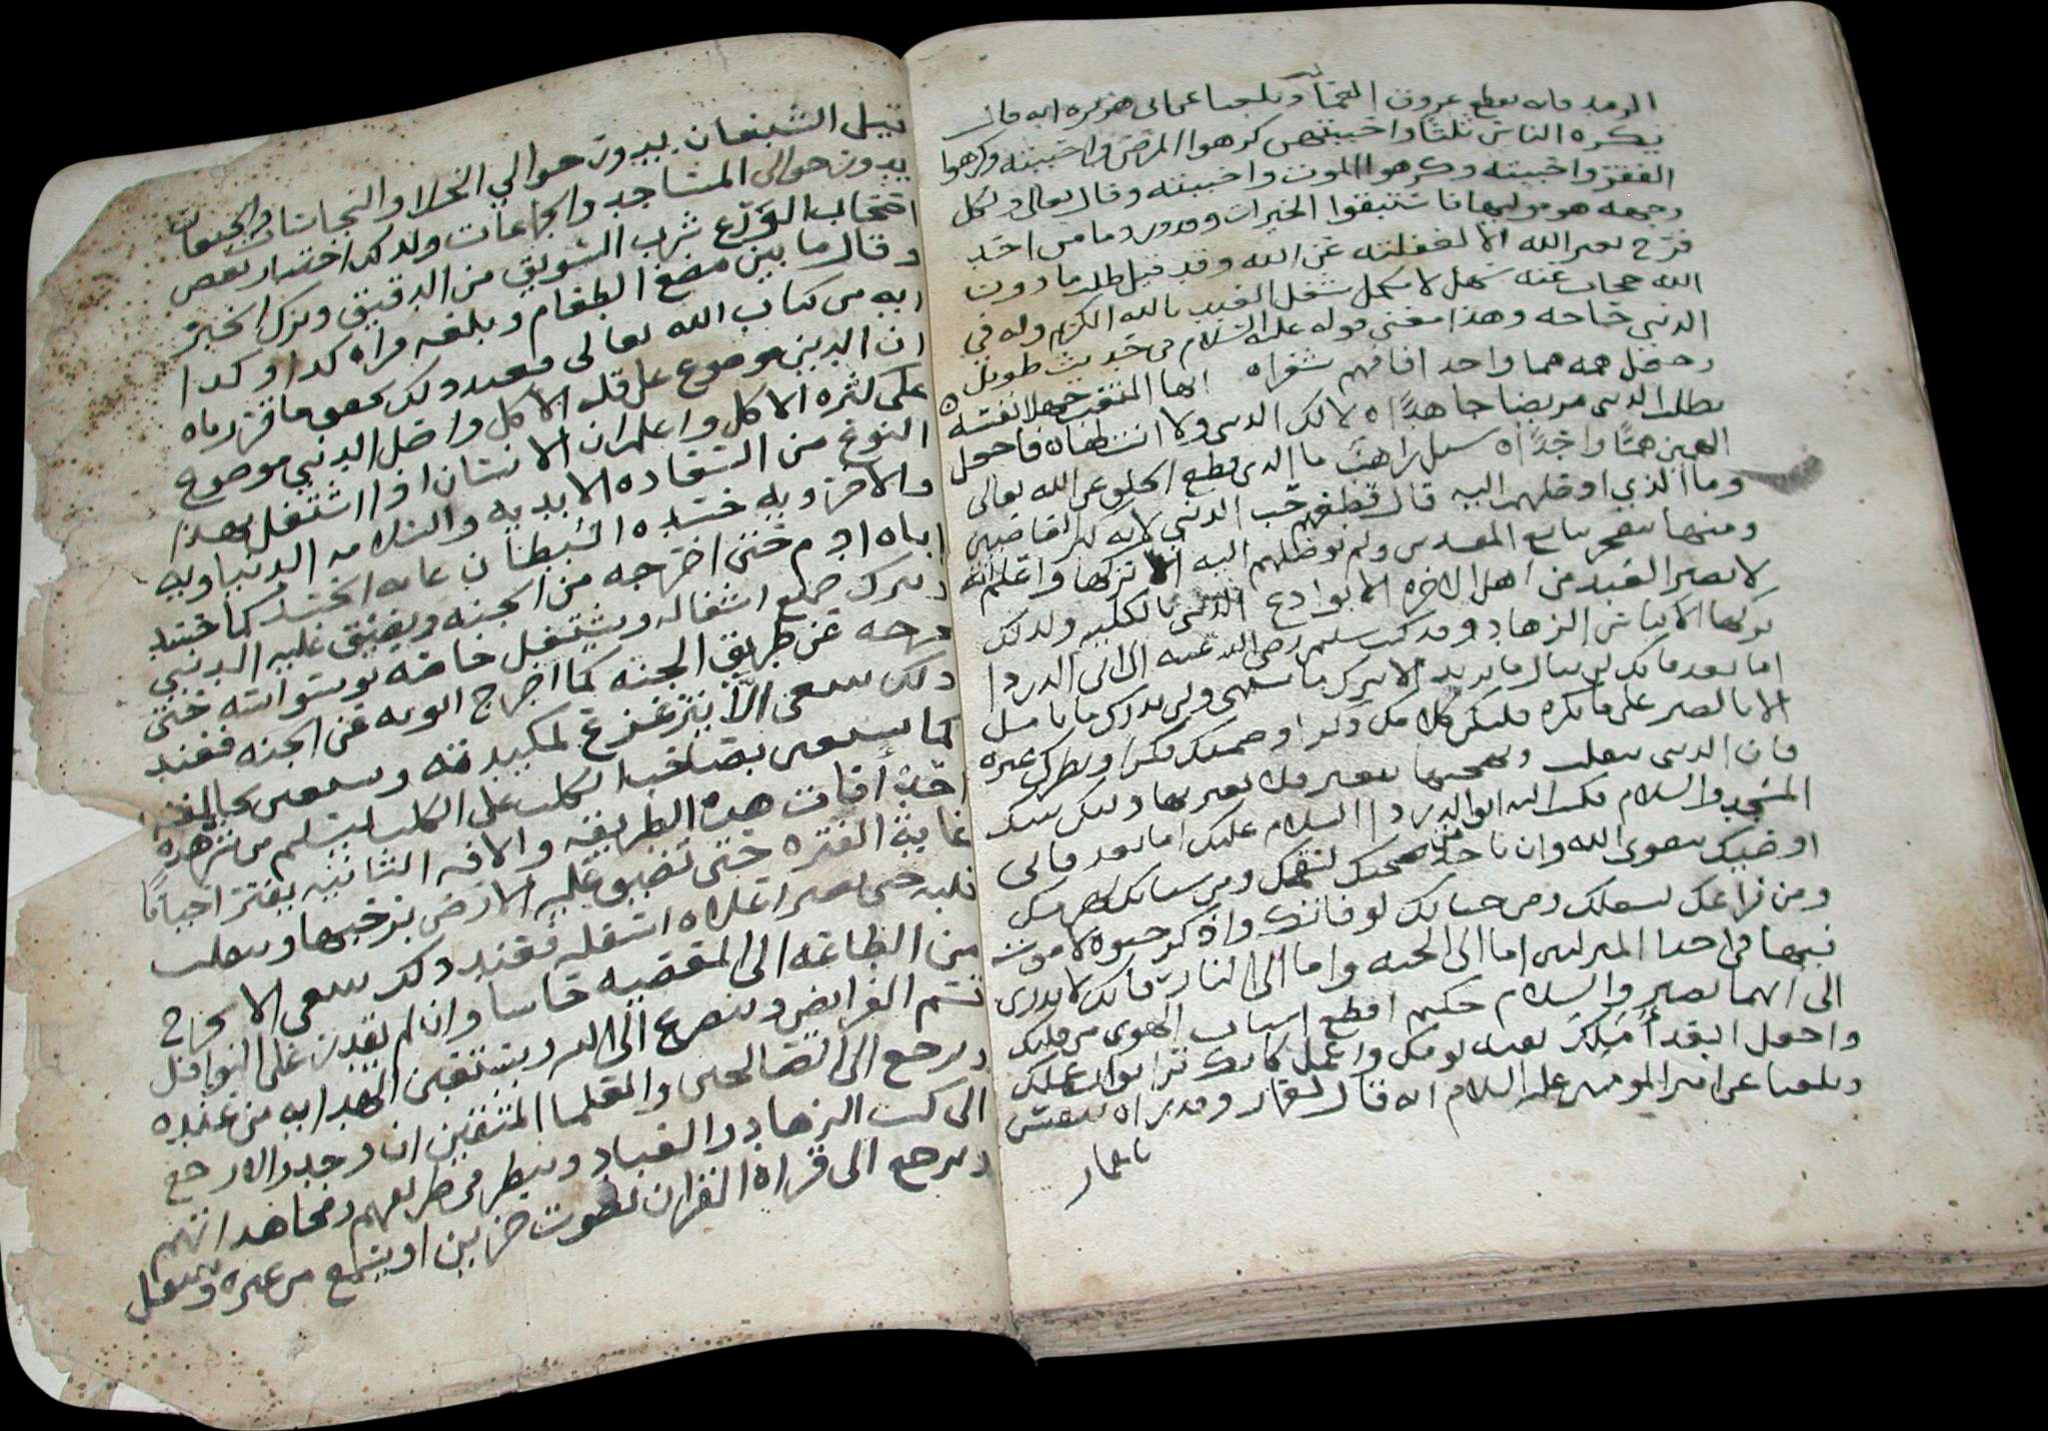 الرمد فانه يقطع عروق العمى وبلغنا عن ابي هريره انه قال
يكره الناس ثلثا واحببتهن كرهوا المرض واحببته وكرهوا
الفقر واحببته وكرهوا الموت واحببته وقال تعالى ولكل
وجهه هو موليها فاستبقوا الخيرات وما من احد
فرح بغير الله الا لغفلته عن الله وقد قيل طلب ما دون
الله حجاب عنه سهل لا شغل بالله الكريم وله في
الدنيى حاجه وهذا معنى قوله عليه السلام في حديث طويل
وجعل همه هما واحدا فافهم شعرا ايها المتعب جهلا نفسه
يطلب الدنيى مريضا جاهدا لا لك الدنيى ولا انت لها فاجعل
الهمين هما واحدا سيل راهب ما الذي قطع الخلق عن الله تعالى
وما الذي اوصلهم اليه قال قطعهم حب الدنيى لانه كبر المعاصي
ومنها ولم يوصلهم اليه الا تركها واعلم انه
لا يصير العبد من اهل الاخره الا بوداع الدنيى بالكليه ولذلك
تركها الاكياس الزهاد وقد كتب سلمن رضي الله عنه الى ابي الدردا
اما بعد فانك لن تنال ما تريد الا بترك ما تشتهي ولن تدرك ما تامل
الا بالصبر على ما تكره فليكن كلامك ذكرا وصمتك فكرا ونظرك عبره
فان الدنيى تتقلب وبهجتها تتغير فلا تغتر بها وليكن بيتك
المسجد والسلام فكتب اليه ابو الدردا السلام عليك اما بعد فاني
اوصيك بتقوى الله وان تاخذ من صحتك لسقمك ومن شبابك لهرمك
ومن فراغك لشغلك ومن حياتك لوفاتك واذكر حيوه لا موت
فيها في احد المنزلين اما الى الجنه واما الى النار فانك لا تدري
الى ايهما تصير والسلام حكيم اقطع اسباب الهوى من قلبك
واجعل ابعد املك بقيه يومك واعمل كانك ترا ثواب عملك
وبلغنا عن امير المومنين عليه السلام انه قال لعمار وقد راه يتنفس
يا عمار
قيل الشبعان يدور حوالي الخلا والنجاسات والجيعان
يدور حوالي المساجد والجماعات ولذلك اختار بعض
اصحاب الورع شرب السويق من الدقيق وترك الخبز
وقال ما بين مضغ الطعام وبلعه قراه كذا وكذا
ايه من كتاب الله تعالى فعند ذلك
ان الدين موضوع على قله الاكل واصل الدنيى موضوع
على كثره الاكل واعلم ان الانسان اذا اشتغل بهذا
النوع من السعاده الابديه والسلامه الدنياويه
والاخرويه حسده الشيطان غايه الحسد كما حسد
اباه ادم حتى اخرجه من الجنه ويضيق عليه الدنيى
وترك جميع اشغاله ويشتغل خاصه بوسواسه حتى
يخرجه عن طريق الجنه كما اخرج ابويه عن الجنه فعند
ذلك ينبغي الا يتزعزع لمكيدته ويستعين بخالقه
كما يستعين بصاحب الكلب على الكلب ليسلم من شره
احد افات هذه الطريقه والافه الثانيه يفتر احيانا
غايه الفتره حتى تضيق عليه الارض برحبها ويتقلب
قلبه حتى يصير اعلاه اسفله فعند ذلك ينبغي الا يخرج
من الطاعه الى المعصيه خاسا وان لم يقدر على النوافل
تمم الفرايض ويتضرع الى الله ويستعين الهدايه من عنده
ويرجع الى الصالحين والعلما المتقين ان وجد والا رجع
الى كتب الزهاد والعباد وينظر في طريقهم ومجاهداتهم
ويرجع الى قراه القران بصوت حزين او يسمع من غيره ويتعلل